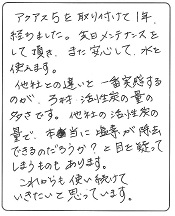 アクアス5を取り付けて1年、
経ちました。実日メンテナンスを
して頂き、また安心して、水を
使えます。
他社との違いと一番実感する
のが、ろ材・活性炭の量の
多さです。他社の活性炭の
量で、本当に塩素が除去
できるのだろうか?と目を疑って
しまうものもあります。
これからも使い続けて
いきたいと思っています。